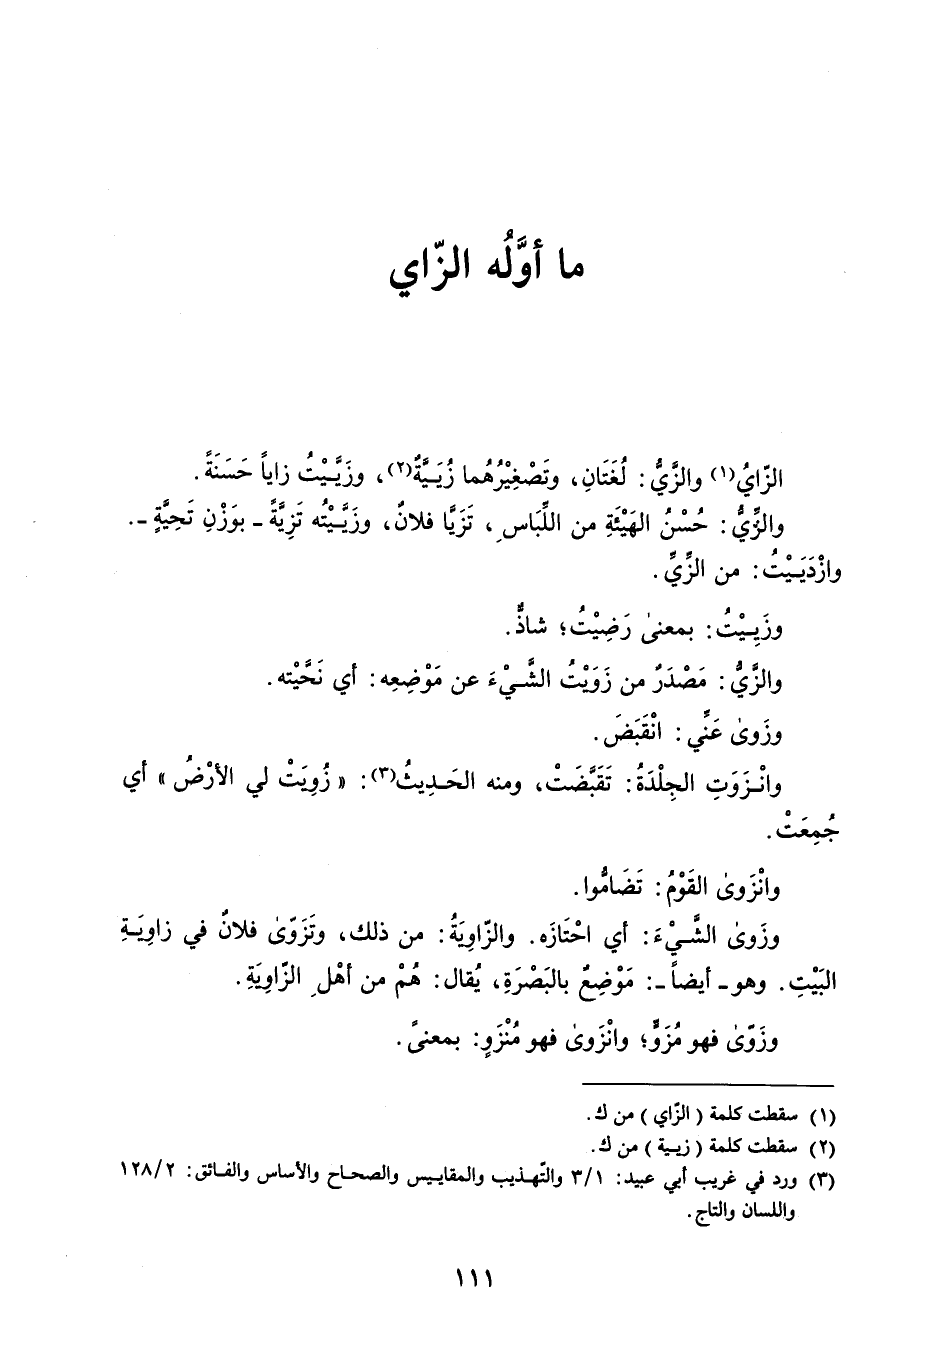 ما أوَّلُه الزّاي
الزّايُ(١) والزَّيُّ: لُغَتَانِ، وتَصْغِيْرُهُما زُيَيَّةٌ(٢)، وزَيَّيْتُ زاياً حَسَنَةً.
والزِّيُّ: حُسْنُ الهَيْئَةِ من اللِّبَاسِ، تَزَيَّا فلانٌ، وزَيَّيْتُه تَزِيَّةً ـ بوَزْنِ تَحِيَّةٍ ـ.
وازْدَيَيْتُ: من الزِّيِّ.
وزَيِيْتُ: بمعنىٰ رَضِيْتُ؛ شاذٌّ.
والزَّيُّ: مَصْدَرٌ من زَوَيْتُ الشَّيْءَ عن مَوْضِعِه: أي نَحَّيْته.
وزَوىٰ عَنِّي: انْقَبَضَ.
وانْزَوَتِ الجِلْدَةُ: تَقَبَّضَتْ، ومنه الحَدِيثُ(٣): « زُوِيَتْ لي الأرْضُ » أي
جُمِعَتْ.
وانْزَوىٰ القَوْمُ: تَضَامُّوا.
وزَوىٰ الشَّيْءَ: أي احْتَازَه. والزّاوِيَةُ: من ذلك، وتَزَوّىٰ فلانٌ في زاوِيَةِ
البَيْتِ. وهو ـ أيضاً ـ: مَوْضِعٌ بالبَصْرَةِ، يُقال: هُمْ من أهْلِ الزّاوِيَةِ.
وزَوّىٰ فهو مُزَوٍّ؛ وانْزَوىٰ فهو مُنْزَوٍ: بمعنىً.
(١) سقطت كلمة ( الزّاي ) من ك.
(٢) سقطت كلمة ( زيية ) من ك.
(٣) ورد في غريب أبي عبيد: ٣/١ والتّهذيب والمقاييس والصحاح والأساس والفائق: ١٢٨/٢
واللسان والتاج.
١١١